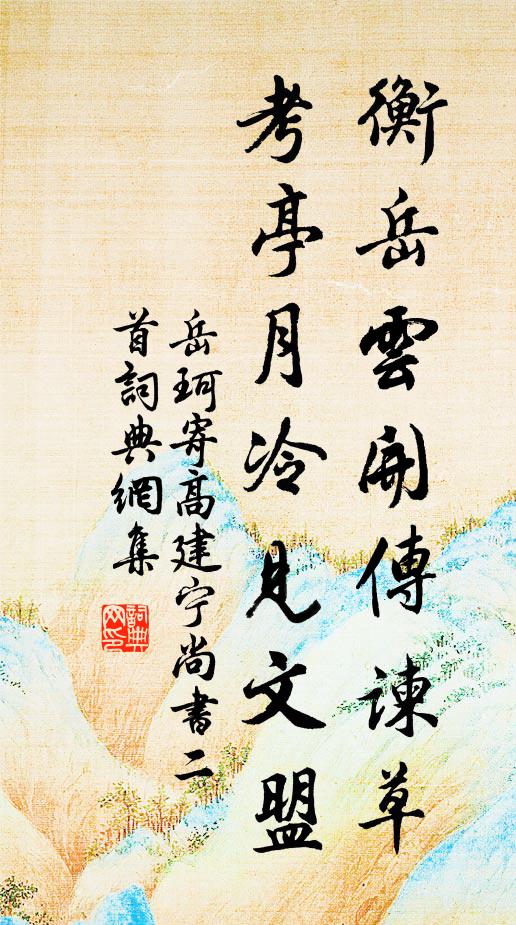 衡岳雲開傳諫草
考亭月冷見文盟
岳珂寄高建宁尚書二
首詞典網集
詞典
网印